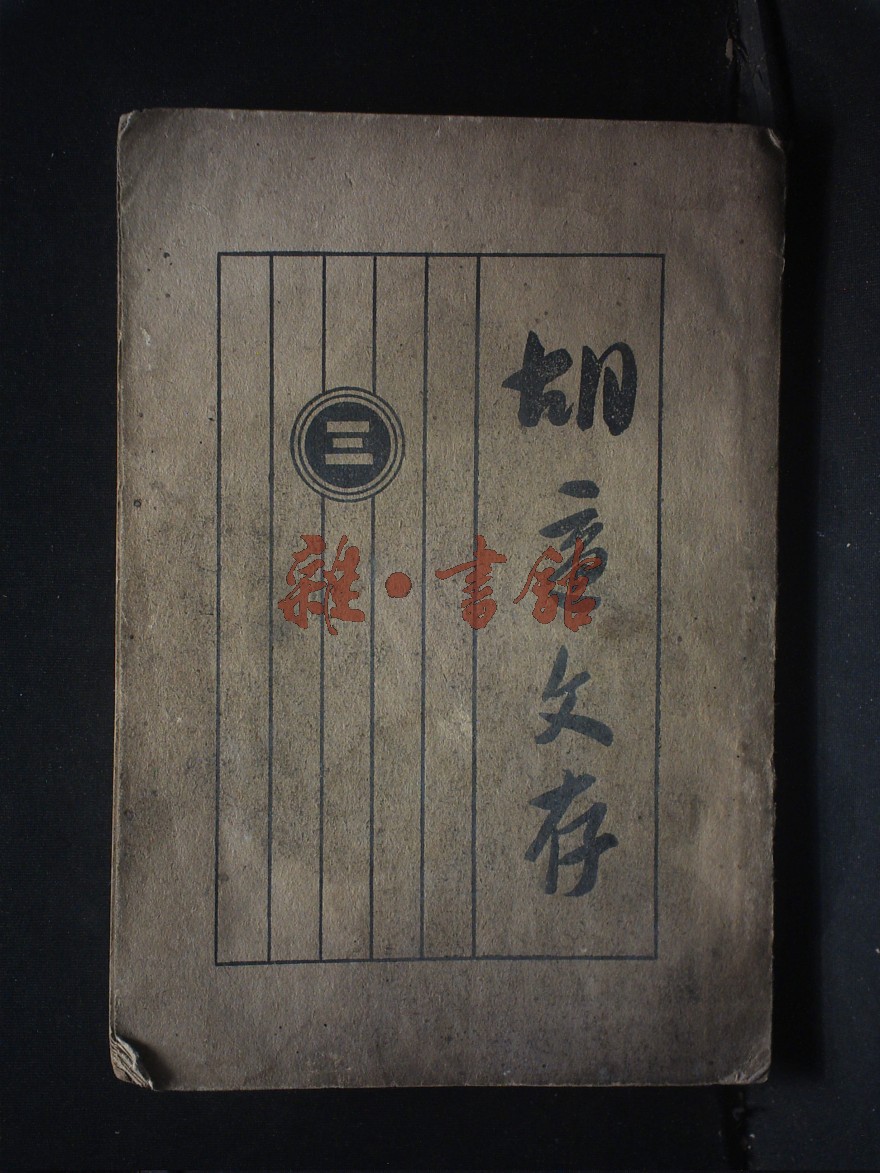 胡適文存
三
雜·書館